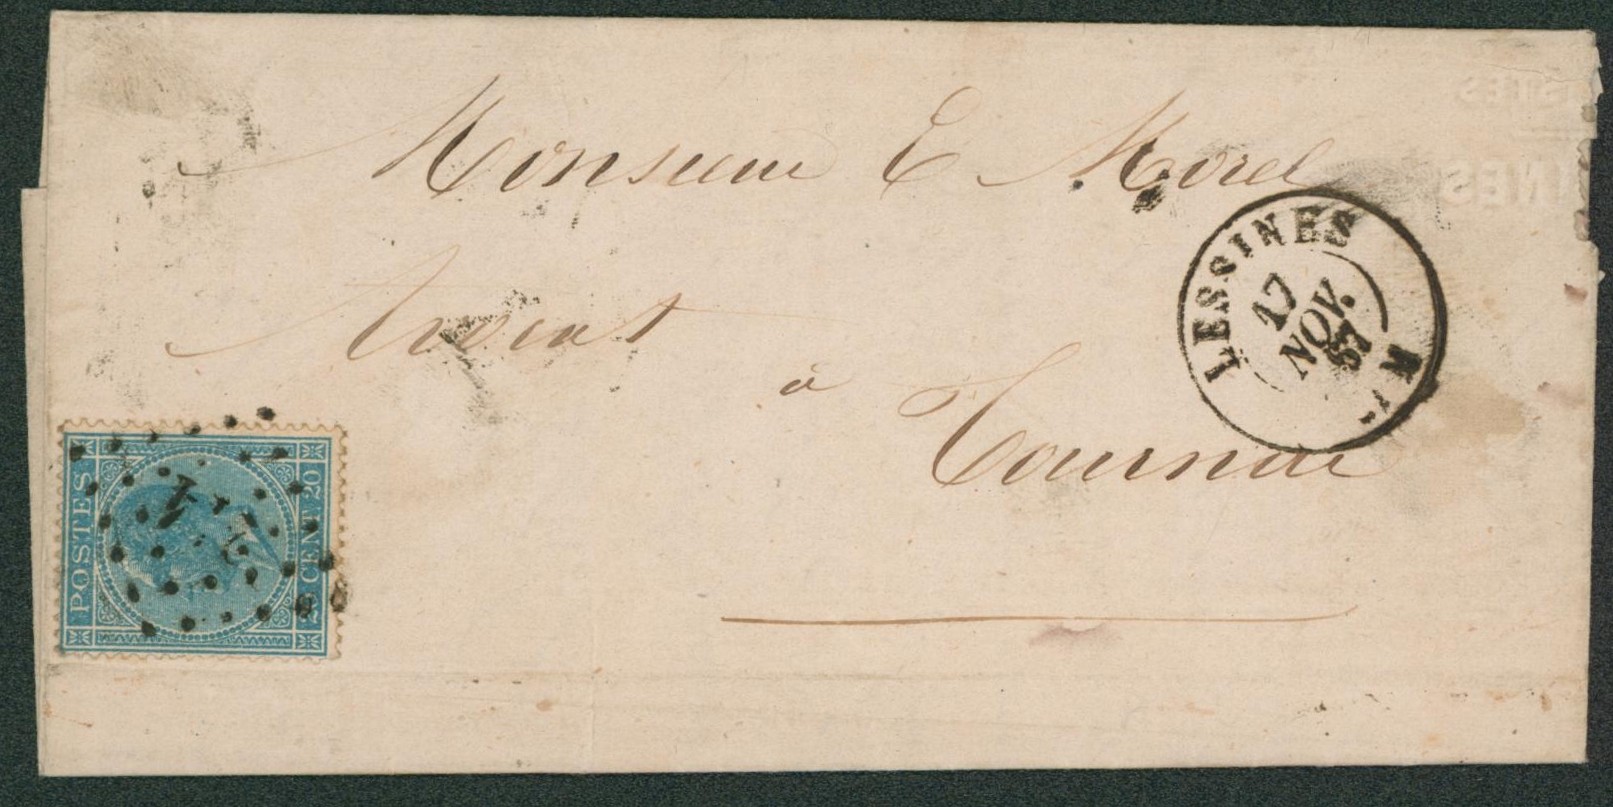 Monsieur E Morel
Avocat
à
Tournai
LESSINES
17
NOV.
67
POSTES
20 CENT 20
STES
INES